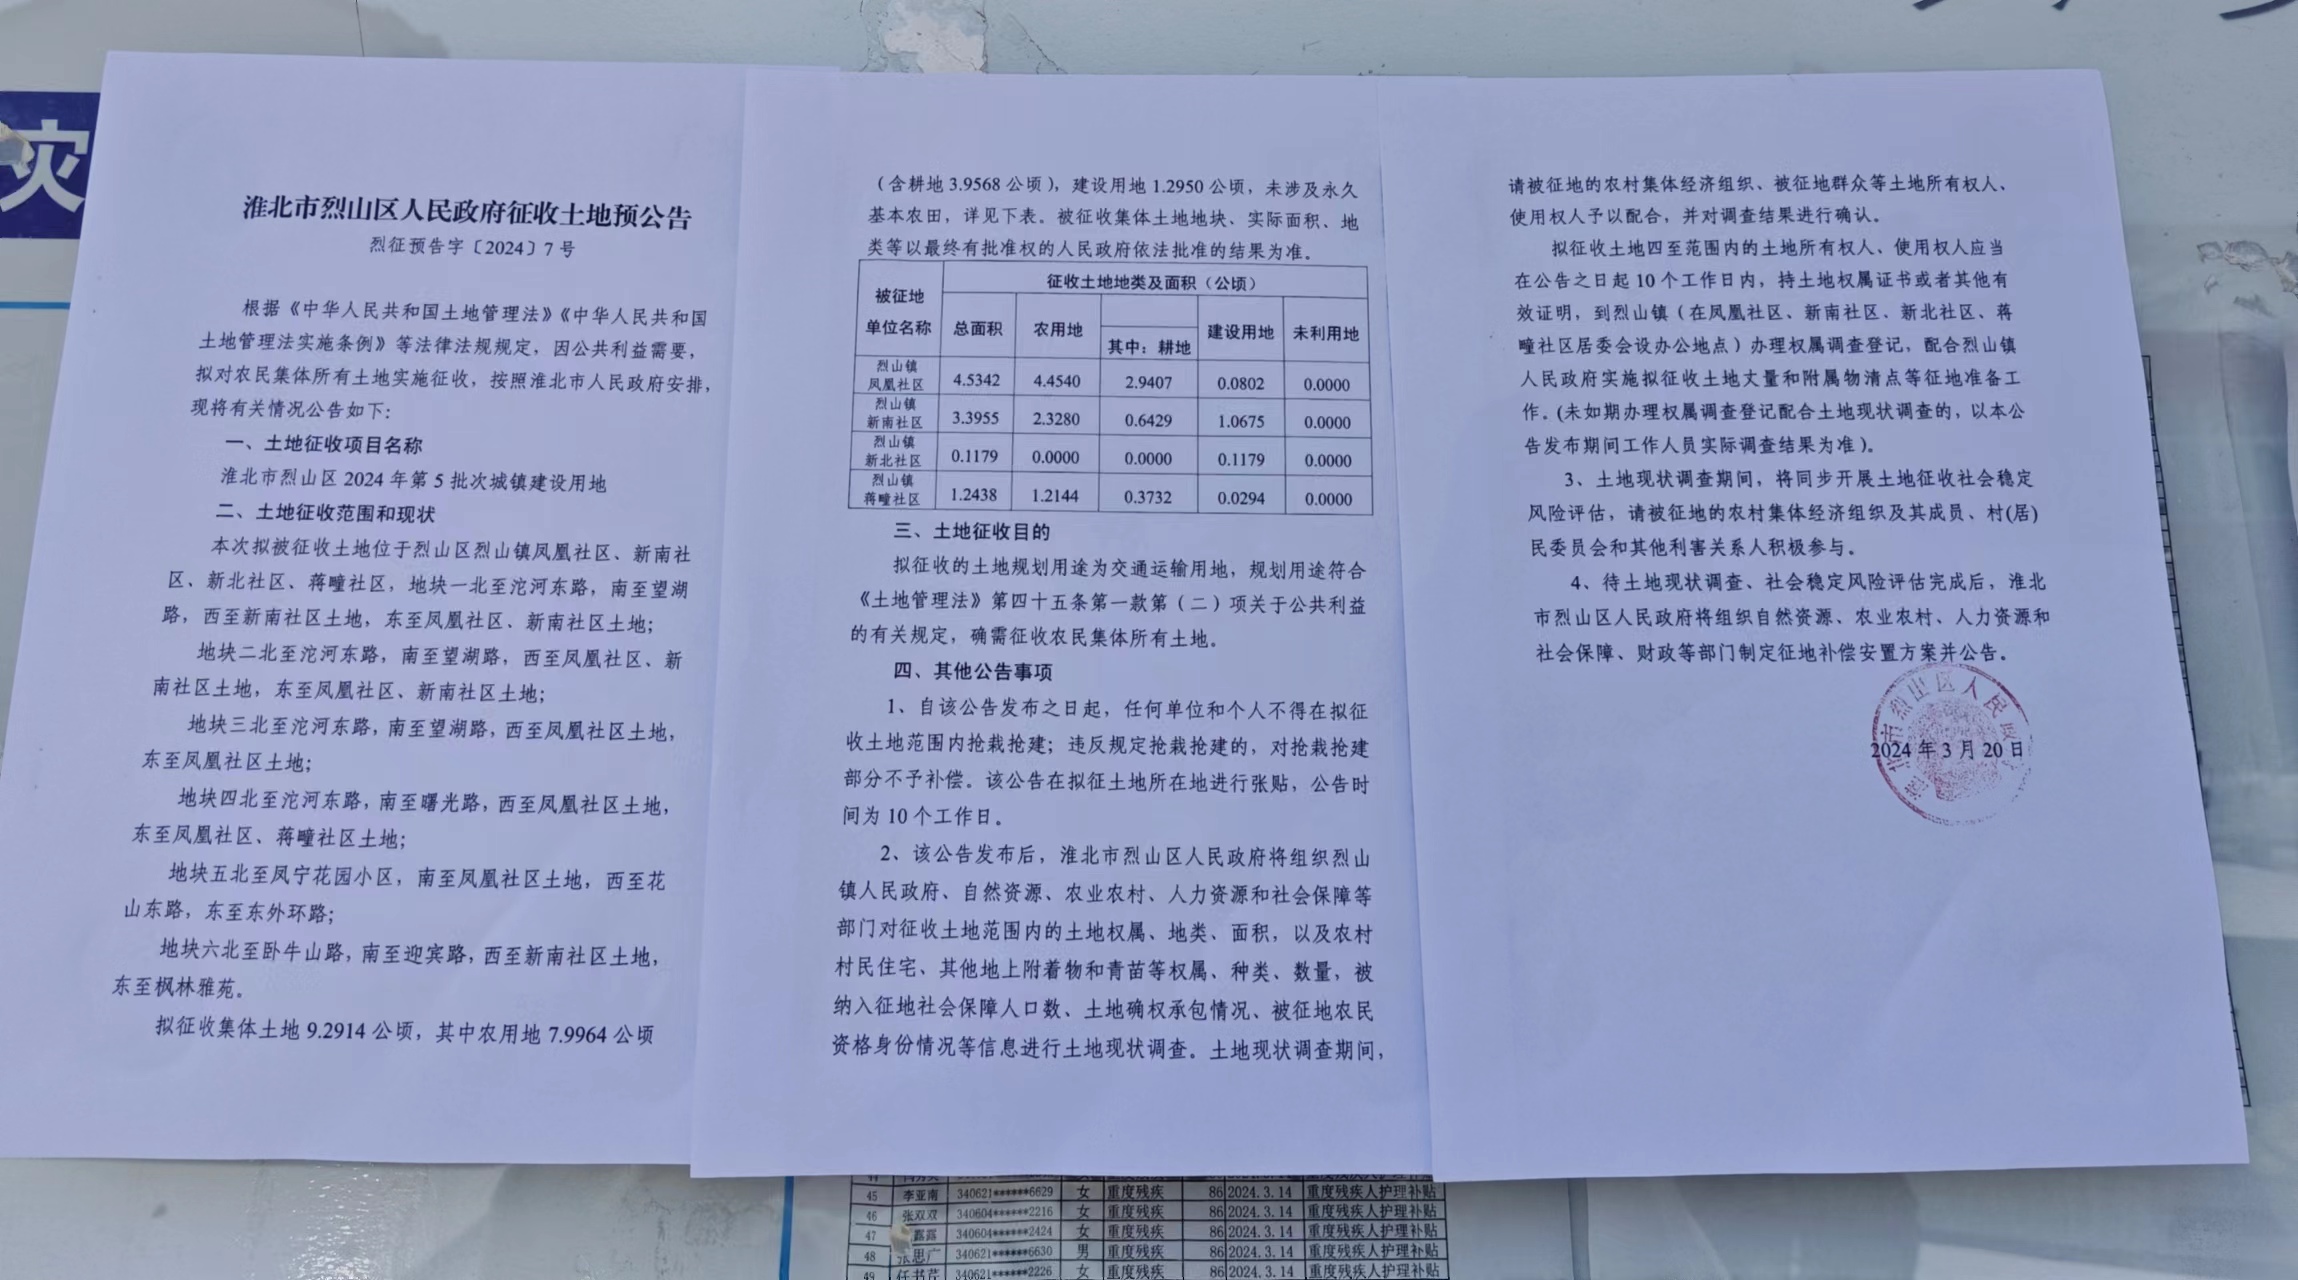 灾
淮北市烈山区人民政府征收土地预公告
烈征预告字〔2024〕7号
根据《中华人民共和国土地管理法》《中华人民共和国
土地管理法实施条例》等法律法规规定，因公共利益需要，
拟对农民集体所有土地实施征收，按照淮北市人民政府安排，
现将有关情况公告如下：
一、土地征收项目名称
淮北市烈山区2024年第5批次城镇建设用地
二、土地征收范围和现状
本次拟被征收土地位于烈山区烈山镇凤凰社区、新南社
区、新北社区、蒋疃社区，地块一北至沱河东路，南至望湖
路，西至新南社区土地，东至凤凰社区、新南社区土地；
地块二北至沱河东路，南至望湖路，西至凤凰社区、新
南社区土地，东至凤凰社区、新南社区土地；
地块三北至沱河东路，南至望湖路，西至凤凰社区土地，
东至凤凰社区土地；
地块四北至沱河东路，南至曙光路，西至凤凰社区土地，
东至凤凰社区、蒋疃社区土地；
地块五北至凤宁花园小区，南至凤凰社区土地，西至花
山东路，东至东外环路；
地块六北至卧牛山路，南至迎宾路，西至新南社区土地，
东至枫林雅苑。
拟征收集体土地9.2914公顷，其中农用地7.9964公顷
（含耕地3.9568公顷），建设用地1.2950公顷，未涉及永久
基本农田，详见下表。被征收集体土地地块、实际面积、地
类等以最终有批准权的人民政府依法批准的结果为准。
被征地
单位名称
征收土地地类及面积（公顷）
总面积 农用地 其中：耕地 建设用地 未利用地
烈山镇
凤凰社区 4.5342 4.4540 2.9407 0.0802 0.0000
烈山镇
新南社区 3.3955 2.3280 0.6429 1.0675 0.0000
烈山镇
新北社区 0.1179 0.0000 0.0000 0.1179 0.0000
烈山镇
蒋疃社区 1.2438 1.2144 0.3732 0.0294 0.0000
三、土地征收目的
拟征收的土地规划用途为交通运输用地，规划用途符合
《土地管理法》第四十五条第一款第（二）项关于公共利益
的有关规定，确需征收农民集体所有土地。
四、其他公告事项
1、自该公告发布之日起，任何单位和个人不得在拟征
收土地范围内抢栽抢建；违反规定抢栽抢建的，对抢栽抢建
部分不予补偿。该公告在拟征土地所在地进行张贴，公告时
间为10个工作日。
2、该公告发布后，淮北市烈山区人民政府将组织烈山
镇人民政府、自然资源、农业农村、人力资源和社会保障等
部门对征收土地范围内的土地权属、地类、面积，以及农村
村民住宅、其他地上附着物和青苗等权属、种类、数量，被
纳入征地社会保障人口数、土地确权承包情况、被征地农民
资格身份情况等信息进行土地现状调查。土地现状调查期间，
请被征地的农村集体经济组织、被征地群众等土地所有权人、
使用权人予以配合，并对调查结果进行确认。
拟征收土地四至范围内的土地所有权人、使用权人应当
在公告之日起10个工作日内，持土地权属证书或者其他有
效证明，到烈山镇（在凤凰社区、新南社区、新北社区、蒋
疃社区居委会设办公地点）办理权属调查登记，配合烈山镇
人民政府实施拟征收土地丈量和附属物清点等征地准备工
作。(未如期办理权属调查登记配合土地现状调查的，以本公
告发布期间工作人员实际调查结果为准)。
3、土地现状调查期间，将同步开展土地征收社会稳定
风险评估，请被征地的农村集体经济组织及其成员、村(居)
民委员会和其他利害关系人积极参与。
4、待土地现状调查、社会稳定风险评估完成后，淮北
市烈山区人民政府将组织自然资源、农业农村、人力资源和
社会保障、财政等部门制定征地补偿安置方案并公告。
2024年3月20日
45 李亚南 340621******6629 女 重度残疾 86 2024.3.14 重度残疾人护理补贴
46 张双双 340604******2216 女 重度残疾 86 2024.3.14 重度残疾人护理补贴
47 露露 340604******2424 女 重度残疾 86 2024.3.14 重度残疾人护理补贴
48 张思广 340621******6630 男 重度残疾 86 2024.3.14 重度残疾人护理补贴
49 任书芹 340621******2226 女 重度残疾 86 2024.3.14 重度残疾人护理补贴